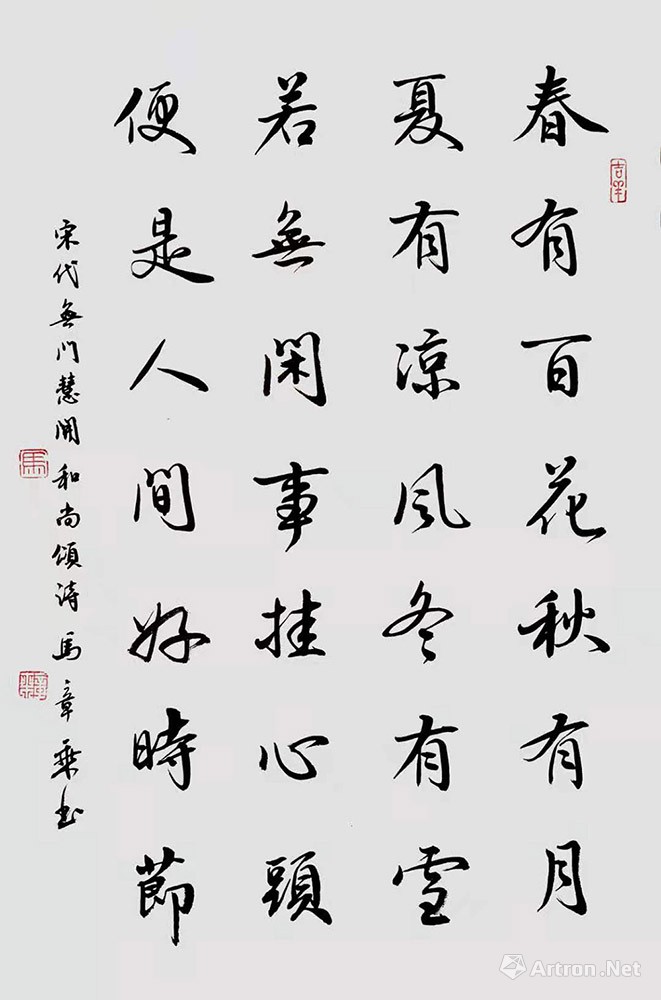 春有百花秋有月
夏有涼風冬有雪
若無閑事挂心頭
便是人間好時節
宋代無門慧開和尚頌詩 馬章乘书
吉羊
馬
Artron.Net